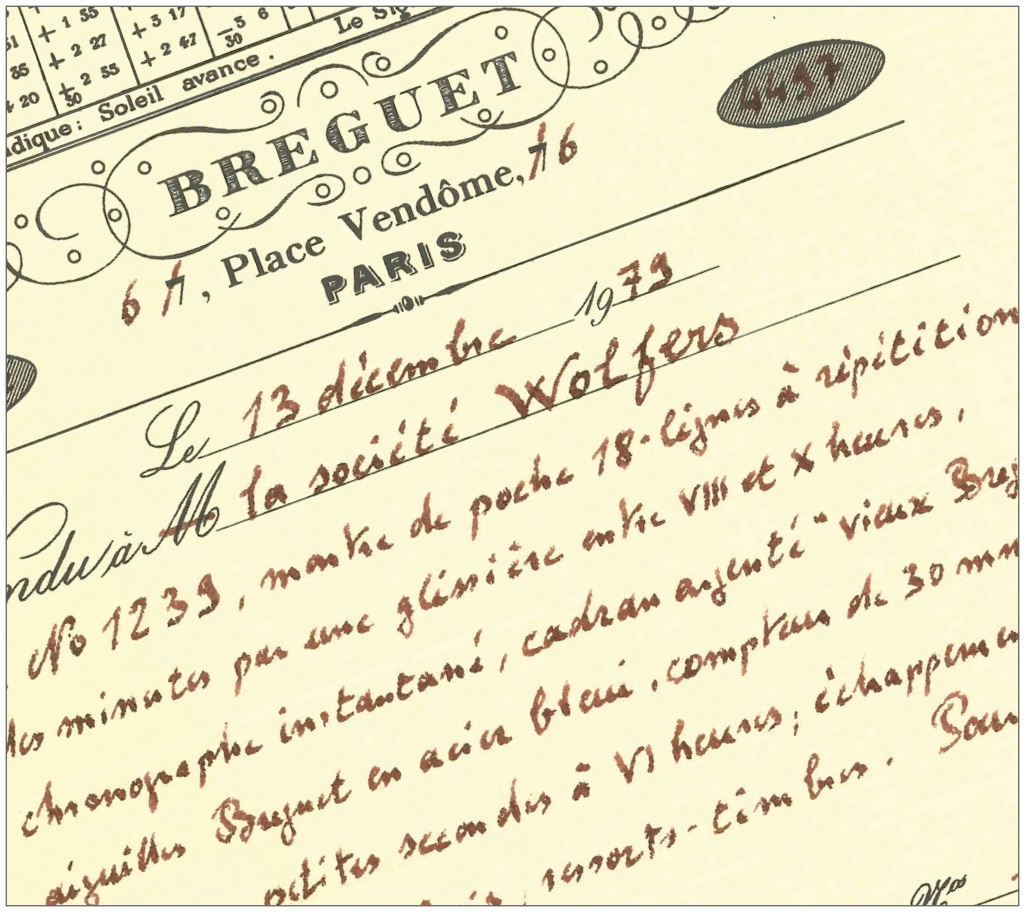 51 + 1 55 + 3 17 - 3 6 Le
35 + 2 27 + 2 47 30
+ 20 + 2 55
30
Indique: Soleil avance.
4497
BREGUET
6 7, Place Vendôme, 7 6
PARIS
Le 13 décembre 1979
Vendu à M la société Wolfers
No 1239, montre de poche 18-lignes à répétition
des minutes par une glissière entre VIII et X heures,
chronographe instantané, cadran argenté "vieux Breg
aiguilles Breguet en acier bleui, compteur de 30 mn
petites secondes à VI heures; échappemen
ressorts-timbres. Pour